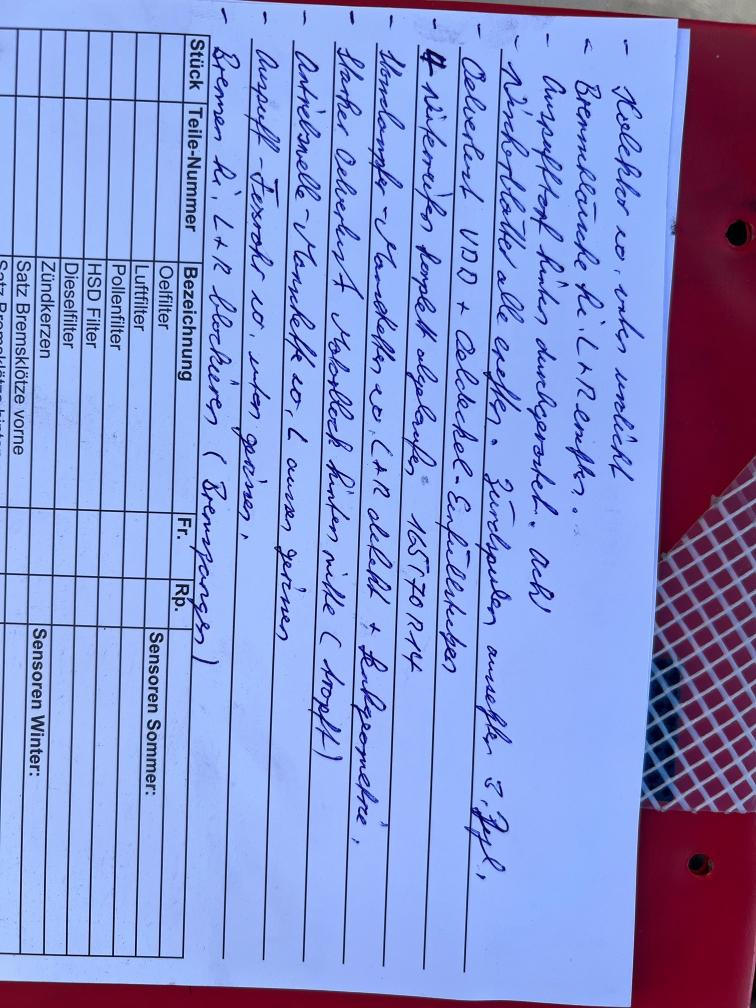 - Kolektor vo. unten undicht
- Bremsklötze hi. L+R ersetzen.
- Auspufftopf hinten durchgerostet.
- Wischerblätter alle ersetzen. Zündspulen ersetzen 3. Zyl.
- Oelverlust VDD + Oeldeckel-Einfüllstutzen
- 4 Winterreifen komplett abgelaufen 165/70R14
- Stossdämpfer-Manschetten vo. L+R defekt + Lenkgeometrie.
- Starker Oelverlust Motorblock hinten mitte (tropft)
- Antriebswelle-Manschette vo. L aussen gerissen
- Auspuff- vo. unten gerissen.
- Bremsen hi. L+R blockieren (Bremszangen)
Stück Teile-Nummer Bezeichnung Fr. Rp.
Oelfilter Sensoren Sommer:
Luftfilter
Pollenfilter
HSD Filter
Dieselfilter
Zündkerzen Sensoren Winter:
Satz Bremsklötze vorne
Satz Bremsklötze hinten